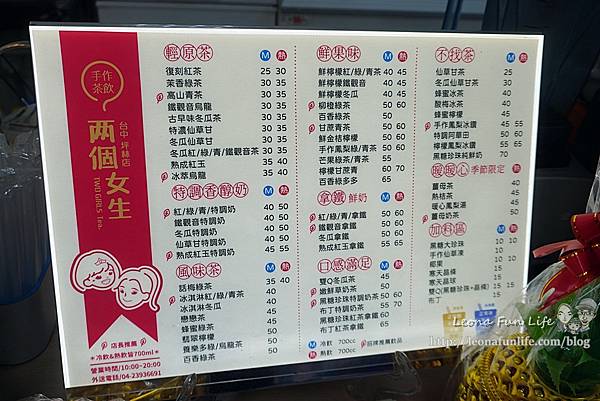 手作
茶飲
台中 坪林店
两個女生
TWO GIRLS Tea.
店長推薦
*冷飲&熱飲皆700ml*
營業時間/10:00~20:00
外送電話/04-23936691
輕原茶 M 熱
復刻紅茶 25 30
茶香綠茶 25 30
高山青茶 30 35
鐵觀音烏龍 30 35
古早味冬瓜茶 30 35
特濃仙草甘 30 35
冬瓜仙草甘 30 35
冬瓜紅/綠/青/鐵觀音茶 30 35
熟成紅玉 35 40
冰萃烏龍 35 40
特調香醇奶
紅/綠/青/特調奶 40 50
鐵觀音特調奶 40 50
冬瓜特調奶 40 50
仙草甘特調奶 40 50
熟成紅玉特調奶 45 55
風味茶 M 熱
話梅綠茶 35 40
冰淇淋紅/綠/青茶
冰淇淋冬瓜
戀戀茶
蜂蜜綠茶
翡翠檸檬
養樂多綠/烏龍茶
百香綠茶
鮮果味 M 熱
鮮檸檬紅/綠/青茶 40 45
鮮檸檬鐵觀音 40 45
鮮檸檬冬瓜 40 45
柳橙綠茶 50 60
百香綠茶 50
甘蔗青茶 50 60
鮮金桔檸檬
手作鳳梨綠/青茶
芒果綠茶/青茶
檸檬甘蔗青
百香綠多多
拿鐵 鮮奶
紅/綠/青拿鐵 50 60
鐵觀音拿鐵 50 60
冬瓜拿鐵 50 60
熟成紅玉拿鐵 55 65
口感滿足 M 熱
雙Q冬瓜茶
嫩鮮草奶茶
黑糖珍珠特調奶茶
布丁特調奶茶
黑糖珍珠紅茶拿鐵
布丁紅茶拿鐵
M 冷飲 700cc
熱 熱飲 700cc 招牌推薦飲品
不找茶 M 熱
仙草甘茶 25
冬瓜仙草甘茶 30
蜂蜜冰茶 40
酸梅冰茶 40
蜂蜜檸檬
手作鳳梨冰鑽 45 55
特調阿華田 50 50
檸檬鳳梨冰鑽 55
黑糖珍珠純鮮奶 70
暖暖心 季節限定 熱
薑母茶 40
熱桔茶 45
暖心鳳梨湯 50
薑母奶茶 50
加料區 M 熱
黑糖大珍珠 10 10
手作仙草凍 10 10
椰果
寒天晶條
寒天晶球
雙Q(黑糖珍珠+晶條)
布丁
Leona Fun Life
http://leonafunlife.com/blog